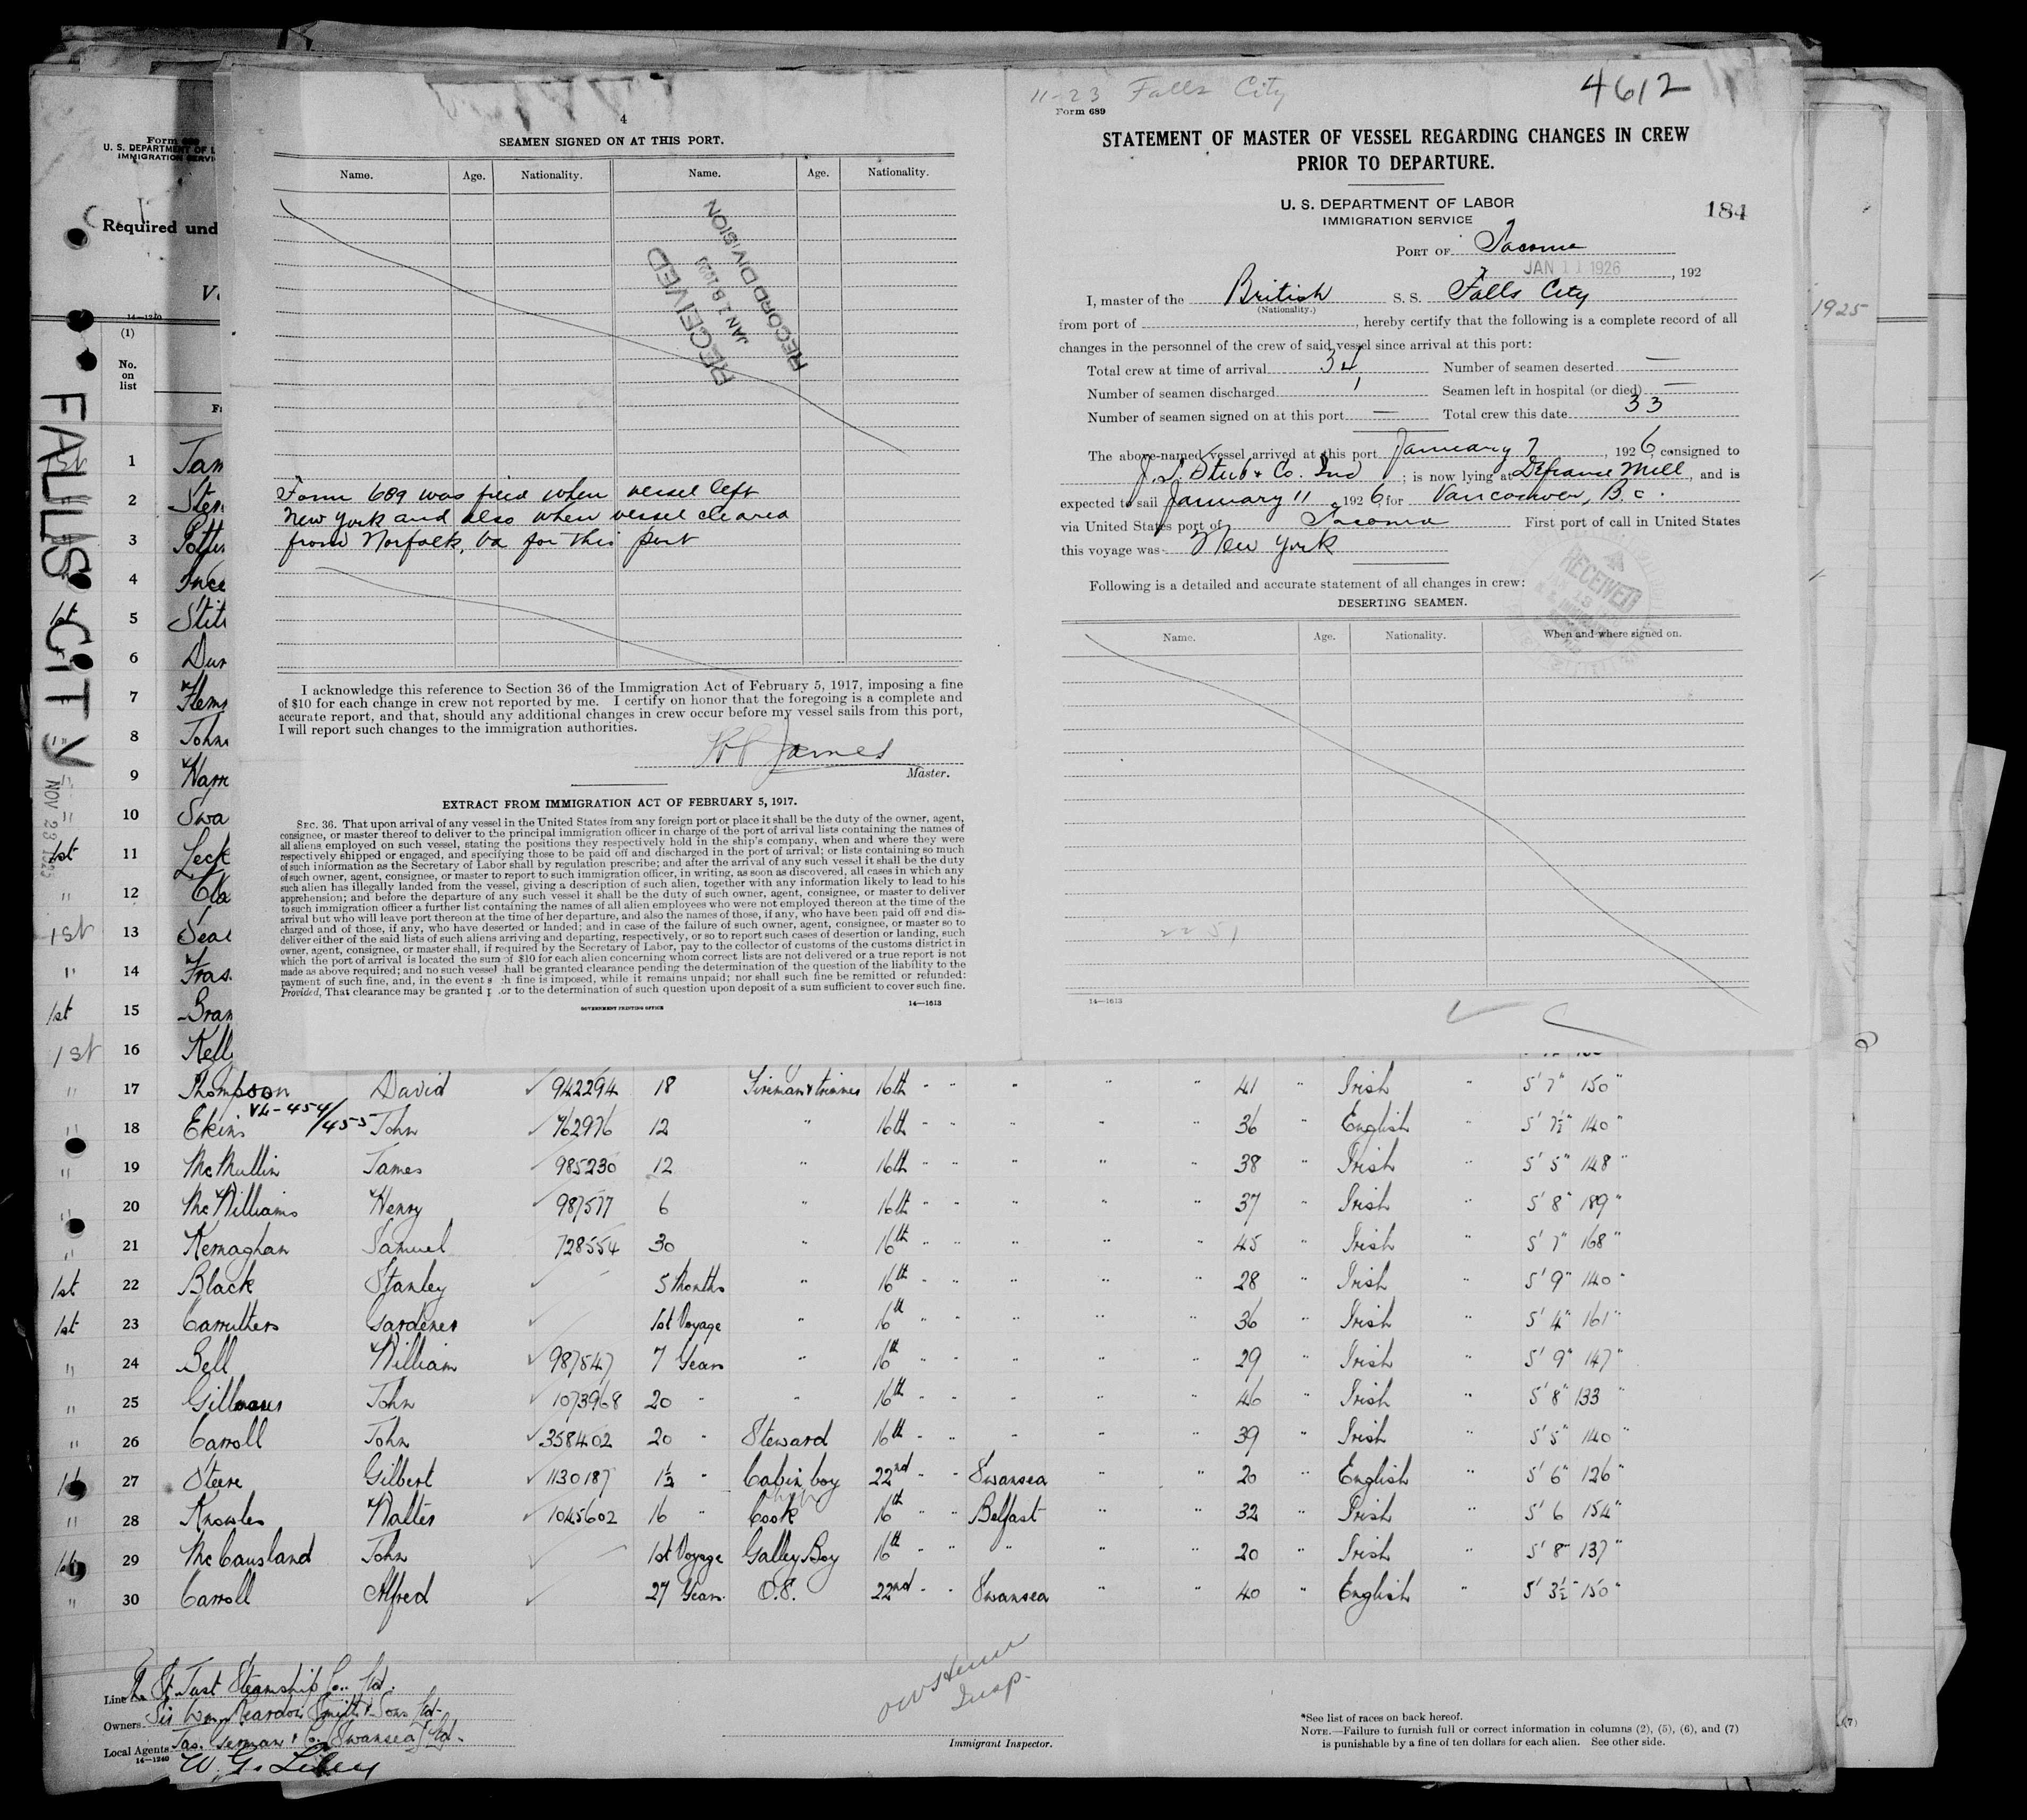 4
SEAMEN SIGNED ON AT THIS PORT.
Name. Age. Nationality. Name. Age. Nationality.
RECEIVED
RECORD DIVISION
Form 689 was filed when vessel left
New York and also when vessel cleared
from Norfolk, Va for this port
I acknowledge this reference to Section 36 of the Immigration Act of February 5, 1917, imposing a fine
of $10 for each change in crew not reported by me. I certify on honor that the foregoing is a complete and
accurate report, and that, should any additional changes in crew occur before my vessel sails from this port,
I will report such changes to the immigration authorities.
James
Master.
EXTRACT FROM IMMIGRATION ACT OF FEBRUARY 5, 1917.
SEC. 36. That upon arrival of any vessel in the United States from any foreign port or place it shall be the duty of the owner, agent,
consignee, or master thereof to deliver to the principal immigration officer in charge of the port of arrival lists containing the names of
all aliens employed on such vessel, stating the positions they respectively hold in the ship's company, when and where they were
respectively shipped or engaged, and specifying those to be paid off and discharged in the port of arrival; or lists containing so much
of such information as the Secretary of Labor shall by regulation prescribe; and after the arrival of any such vessel it shall be the duty
of such owner, agent, consignee, or master to report to such immigration officer, in writing, as soon as discovered, all cases in which any
such alien has illegally landed from the vessel, giving a description of such alien, together with any information likely to lead to his
apprehension; and before the departure of any such vessel it shall be the duty of such owner, agent, consignee, or master to deliver
to such immigration officer a further list containing the names of all alien employees who were not employed thereon at the time of the
arrival but who will leave port thereon at the time of her departure, and also the names of those, if any, who have been paid off and dis-
charged and of those, if any, who have deserted or landed; and in case of the failure of such owner, agent, consignee, or master so to
deliver either of the said lists of such aliens arriving and departing, respectively, or so to report such cases of desertion or landing, such
owner, agent, consignee, or master shall, if required by the Secretary of Labor, pay to the collector of customs of the customs district in
which the port of arrival is located the sum of $10 for each alien concerning whom correct lists are not delivered or a true report is not
made as above required; and no such vessel shall be granted clearance pending the determination of the question of the liability to the
payment of such fine, and, in the event s ch fine is imposed, while it remains unpaid; nor shall such fine be remitted or refunded:
Provided, That clearance may be granted p or to the determination of such question upon deposit of a sum sufficient to cover such fine.
GOVERNMENT PRINTING OFFICE 14—1613
11-23 Falls City 4612
Form 689
STATEMENT OF MASTER OF VESSEL REGARDING CHANGES IN CREW
PRIOR TO DEPARTURE.
U. S. DEPARTMENT OF LABOR
IMMIGRATION SERVICE
184
PORT OF Tacoma
JAN 11 1926, 192
I, master of the British S. S. Falls City
(Nationality.)
from port of , hereby certify that the following is a complete record of all
changes in the personnel of the crew of said vessel since arrival at this port:
Total crew at time of arrival 34 Number of seamen deserted —
Number of seamen discharged 1 Seamen left in hospital (or died) —
Number of seamen signed on at this port — Total crew this date 33
The above-named vessel arrived at this port January 7, 1926, consigned to
& Co. ; is now lying at Defiance Mill, and is
expected to sail January 11, 1926, for Vancouver, B.C.
via United States port of Tacoma First port of call in United States
this voyage was New York
RECEIVED
Following is a detailed and accurate statement of all changes in crew:
DESERTING SEAMEN.
Name. Age. Nationality. When and where signed on.
2251
14—1613
1925
Form 689
U. S. DEPARTMENT OF L
IMMIGRATION SERVI
Required und
14—1240
(1)
No.
on
list
FALLS CITY
NOV 23 1925
1st 1 Jam
2
3
4 Ince
1st 5 Stit
6 Dun
7 Flem
8 John
9 Harr
10 Swa
1st 11 Leck
" 12 Cla
1st 13 Seal
" 14 Fras
1st 15 Bran
1st 16 Kell
" 17 Thompson David 942294 18 Fireman & trimmer 16th " " " " 41 " Irish " 5' 7" 150"
" 18 Ekins V4-454/455 John 762976 12 " 16th " " " " 36 " English " 5' 7½" 140"
" 19 McMullin James 985230 12 " 16th " " " " 38 " Irish " 5' 5" 148"
" 20 McWilliams Henry 987577 6 " 16th " " " " 37 " Irish " 5' 8" 189"
" 21 Kernaghan Samuel 728554 30 " 16th " " " " 45 " Irish " 5' 7" 168"
1st 22 Black Stanley 5 Months " 16th " " " " 28 " Irish " 5' 9" 140"
1st 23 Carruthers Gardener 1st Voyage " 16th " " " " 36 " Irish " 5' 4" 161"
" 24 Bell William 987547 7 Years " 16th " " " " 29 " Irish " 5' 9" 147"
" 25 John 1073968 20 " " 16th " " " " 46 " Irish " 5' 8" 133"
" 26 Carroll John 358402 20 " Steward 16th " " " " 39 " Irish " 5' 5" 140"
1st 27 Steere Gilbert 1130187 1½ " Cabin boy 22nd " " Swansea " " 20 " English " 5' 6" 126"
" 28 Knowles Walter 1045602 16 " Cook 16th " " Belfast " " 32 " Irish " 5' 6 154"
1st 29 McCausland John 1st Voyage Galley Boy 16th " " " " 20 " Irish " 5' 8" 137"
" 30 Carroll Alfred 27 Years O.S. 22nd " " Swansea " " 40 " English " 5' 3½" 150"
Line St. Just Steamship Co. Ltd.
Owners Sir Wm Reardon Smith & Sons Ltd.
Local Agents Jas. & Co. (Swansea) Ltd.
14—1240
Insp.
Immigrant Inspector.
*See list of races on back hereof.
NOTE.—Failure to furnish full or correct information in columns (2), (5), (6), and (7)
is punishable by a fine of ten dollars for each alien. See other side.
(7)